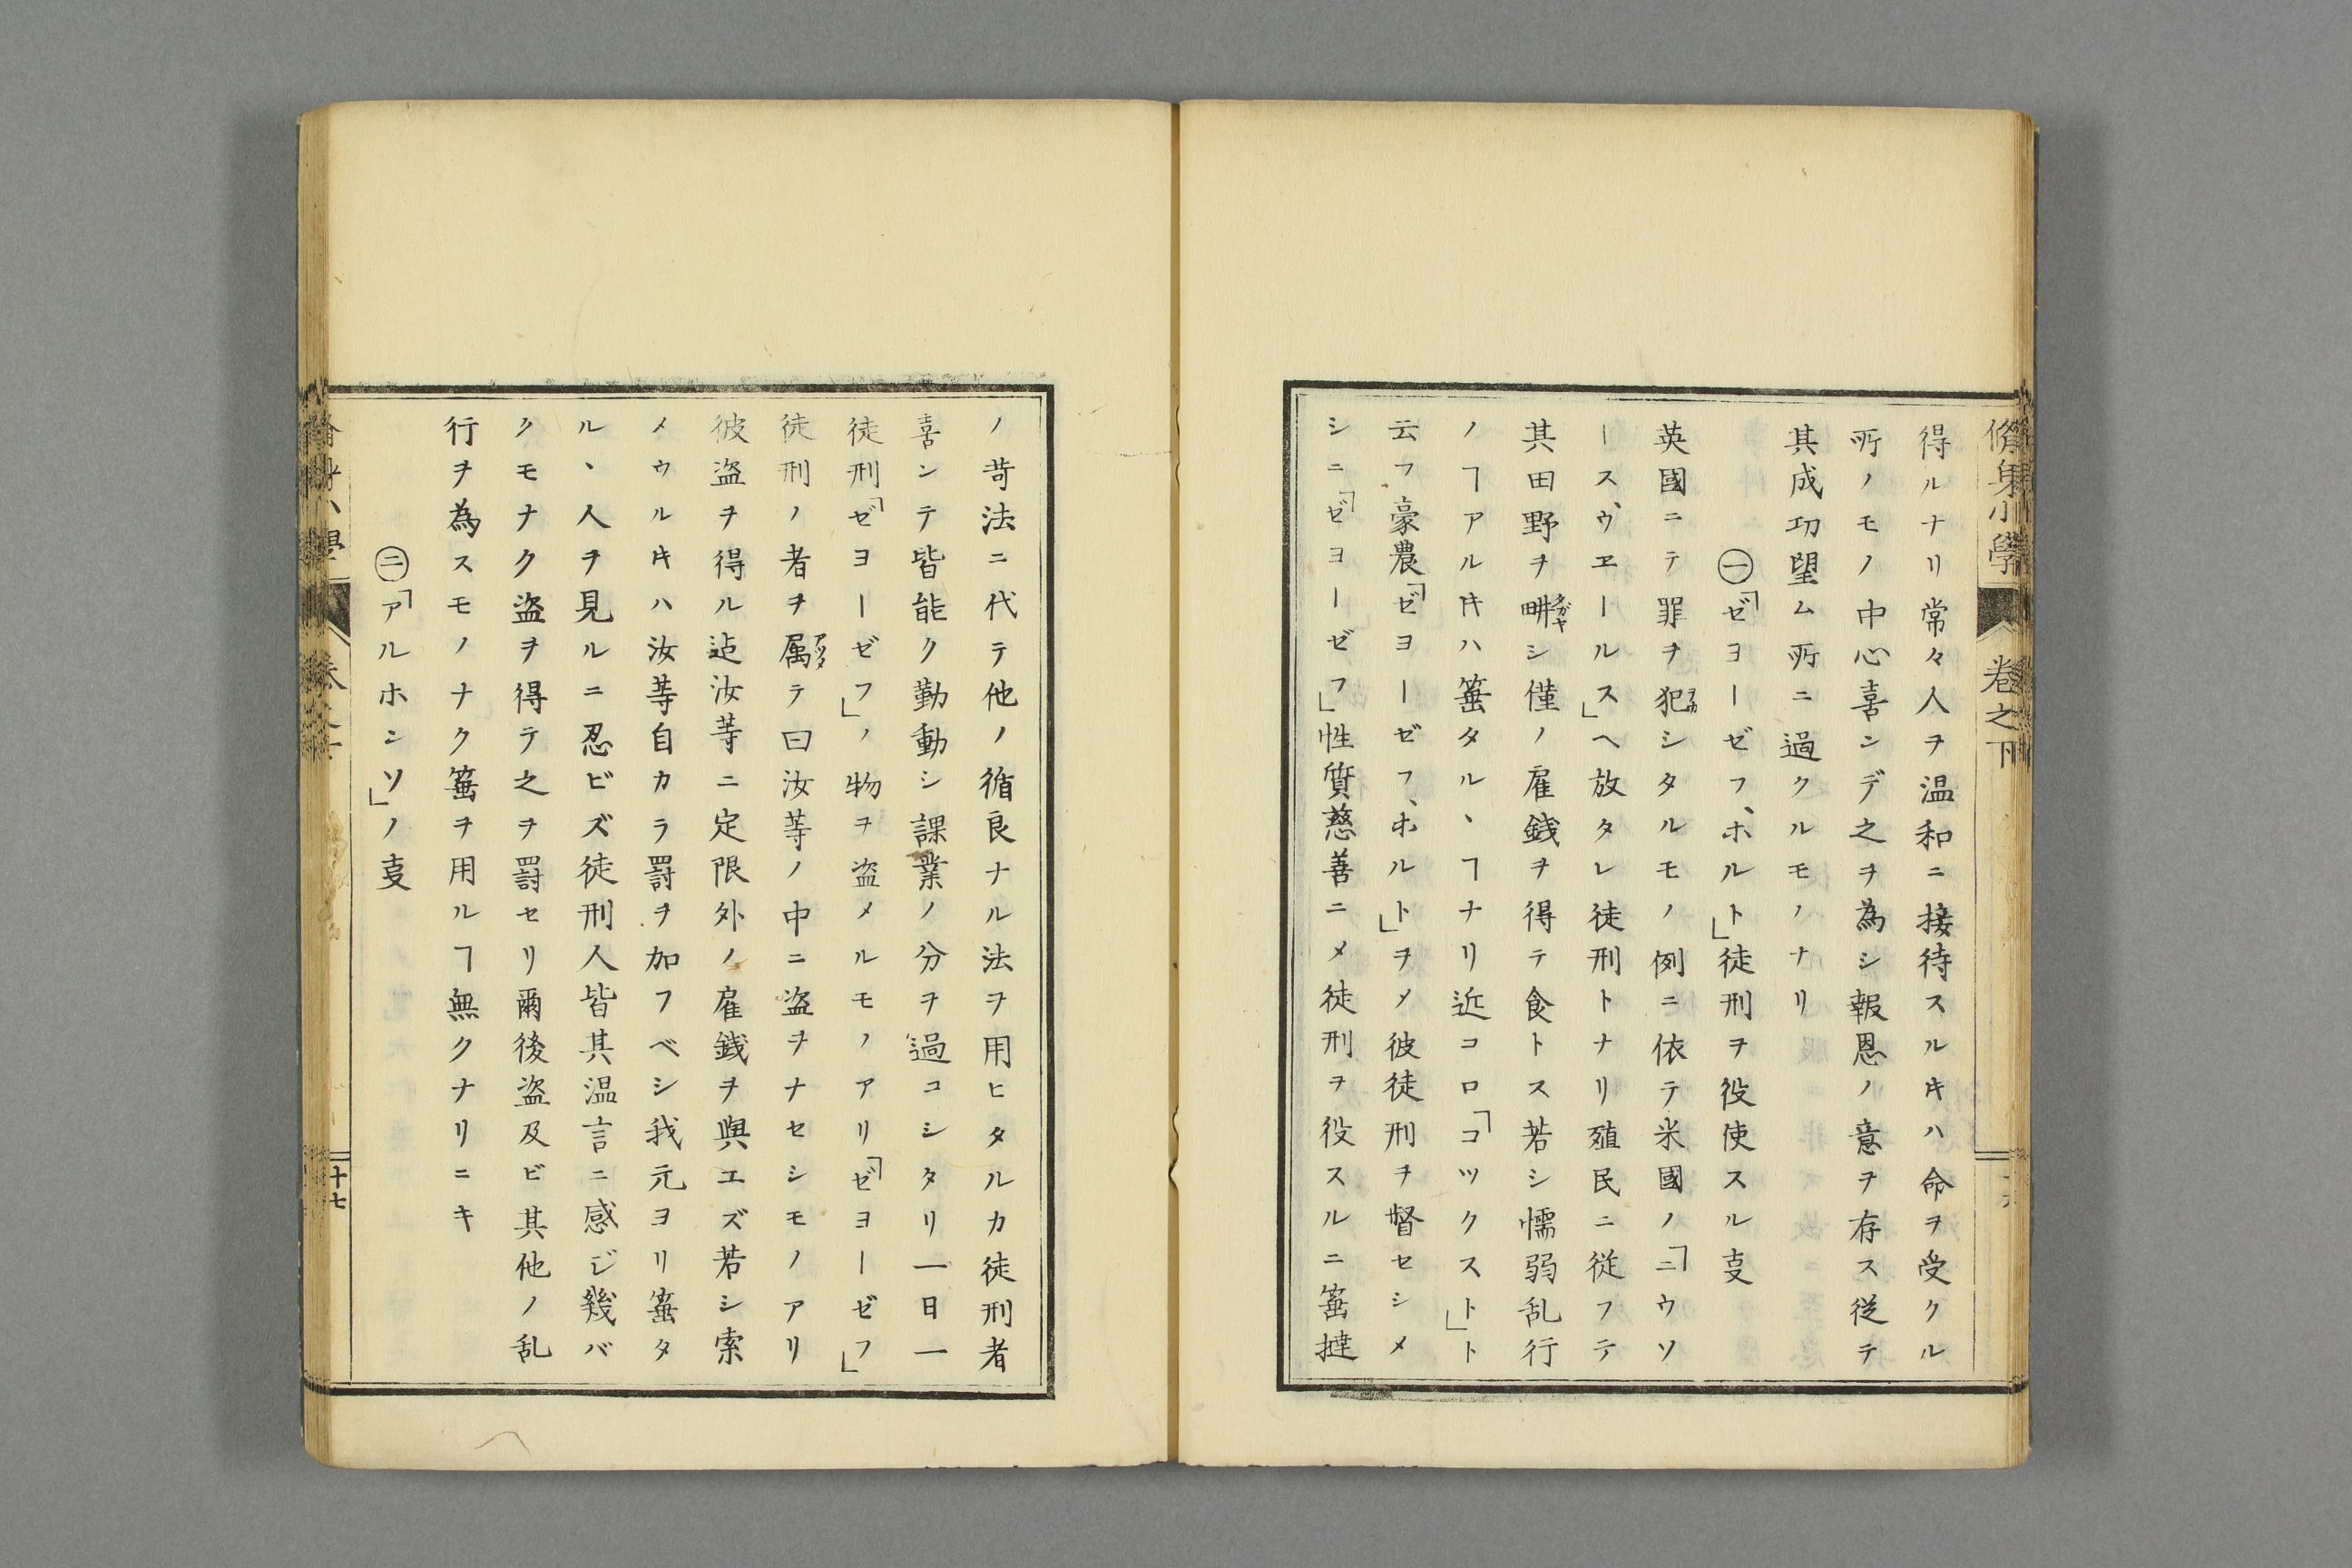 脩身小學 卷之下
得ルナリ常々人ヲ温和ニ接待スルキハ命ヲ受クル
所ノモノ中心喜ンデ之ヲ為シ報恩ノ意ヲ存ス従テ
其成功望ム所ニ過クルモノナリ
㊀「ゼヨーゼフ、ホルト」徒刑ヲ役使スル㕝
英國ニテ罪ヲ犯シタルモノ例ニ依テ米國ノ「ニウソ
ース、ウエールス」ヘ放タレ徒刑トナリ殖民ニ従フテ
其田野ヲ畊シ僅ノ雇銭ヲ得テ食トス若シ懦弱乱行
ノヿアルキハ箠タル、ヿナリ近コロ「コツクスト」ト
云フ豪農「ゼヨーゼフ、ホルト」ヲメ彼徒刑ヲ督セシメ
シニ「ゼヨーゼフ」性質慈善ニメ徒刑ヲ役スルニ箠撻
ノ苛法ニ代テ他ノ循良ナル法ヲ用ヒタルカ徒刑者
喜ンテ皆能ク勤動シ課業ノ分ヲ過コシタリ一日一
徒刑「ゼヨーゼフ」ノ物ヲ盗メルモノアリ「ゼヨーゼフ」
徒刑ノ者ヲ属テ曰汝等ノ中ニ盗ヲナセシモノアリ
彼盗ヲ得ル迠汝等ニ定限外ノ雇銭ヲ與エズ若シ索
メウルキハ汝等自カラ罰ヲ加フベシ我元ヨリ箠タ
ル、人ヲ見ルニ忍ビズ徒刑人皆其温言ニ感ジ幾バ
クモナク盗ヲ得テ之ヲ罰セリ爾後盗及ビ其他ノ乱
行ヲ為スモノナク箠ヲ用ルヿ無クナリニキ
㊁「アルホンソ」ノ㕝
十七